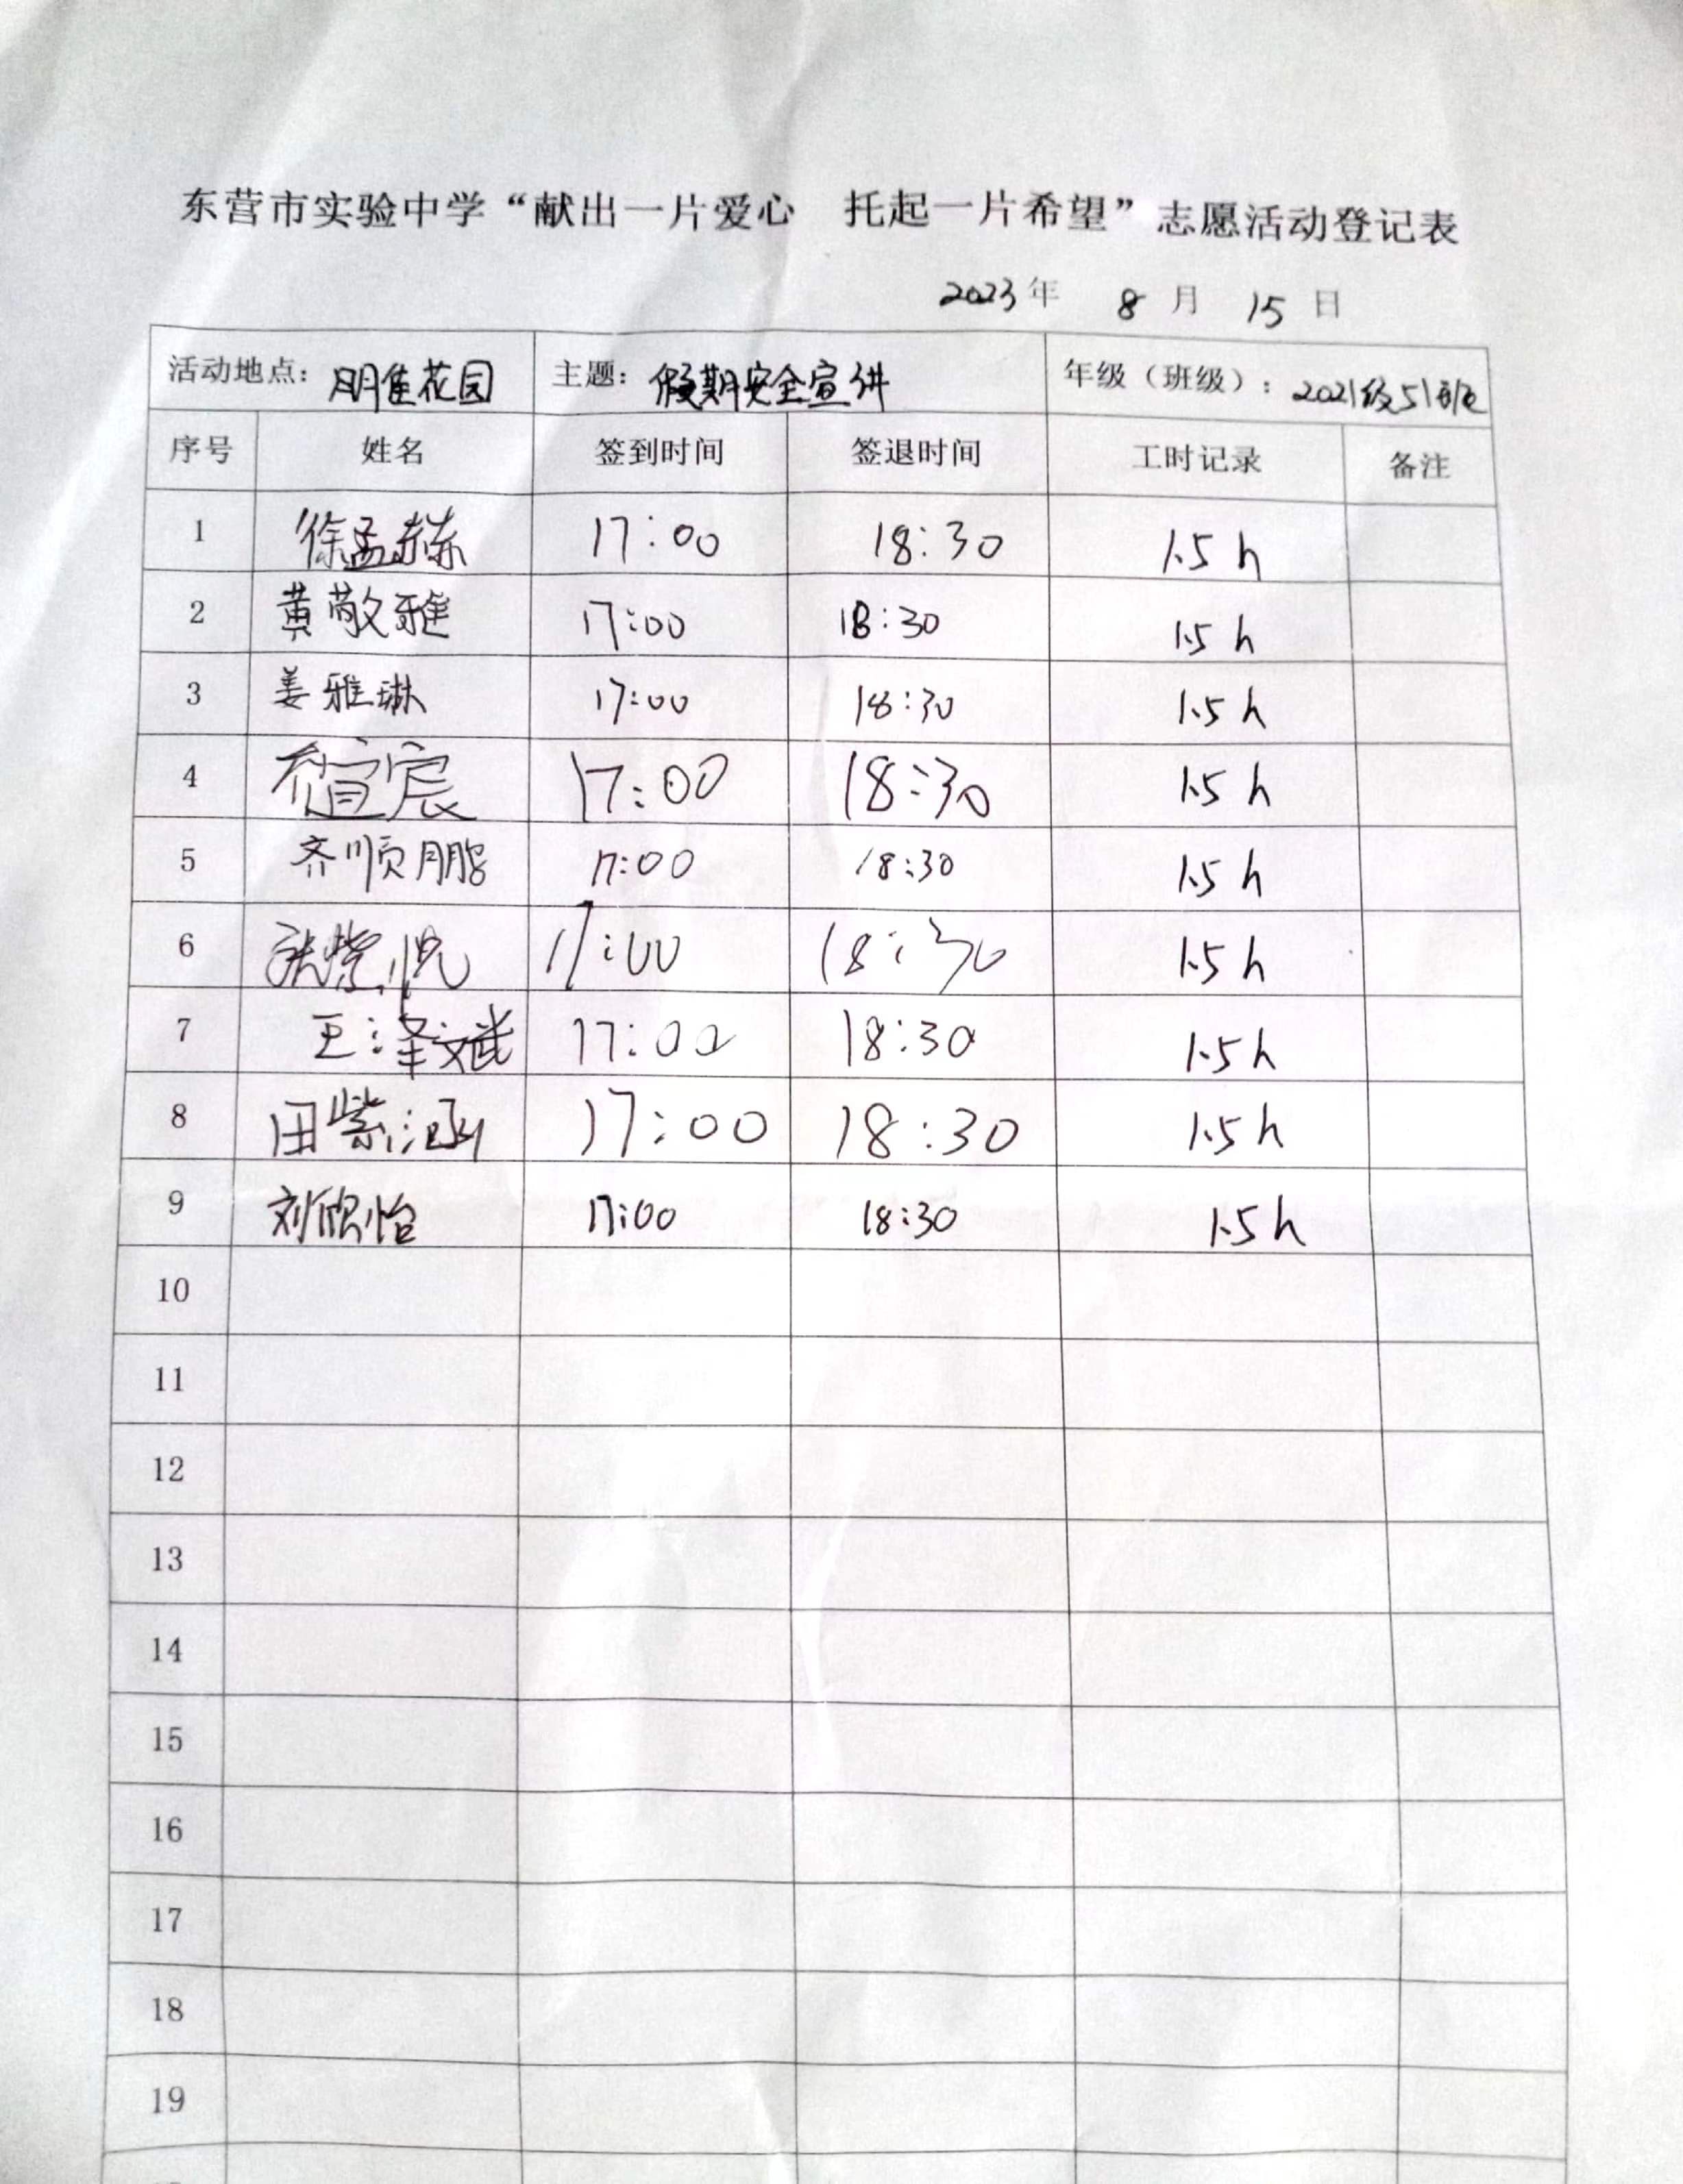 东营市实验中学“献出一片爱心 托起一片希望”志愿活动登记表
2023年 8月 15日
活动地点：明隹花园 主题：假期安全宣讲 年级（班级）：2021级51班
序号 姓名 签到时间 签退时间 工时记录 备注
1 徐孟 17:00 18:30 1.5h
2 黄敬雅 17:00 18:30 1.5h
3 姜雅琳 17:00 18:30 1.5h
4 乔宣宸 17:00 18:30 1.5h
5 齐顺鹏 17:00 18:30 1.5h
6 张 17:00 18:30 1.5h
7 王泽斌 17:00 18:30 1.5h
8 田紫涵 17:00 18:30 1.5h
9 刘欣怡 17:00 18:30 1.5h
10
11
12
13
14
15
16
17
18
19